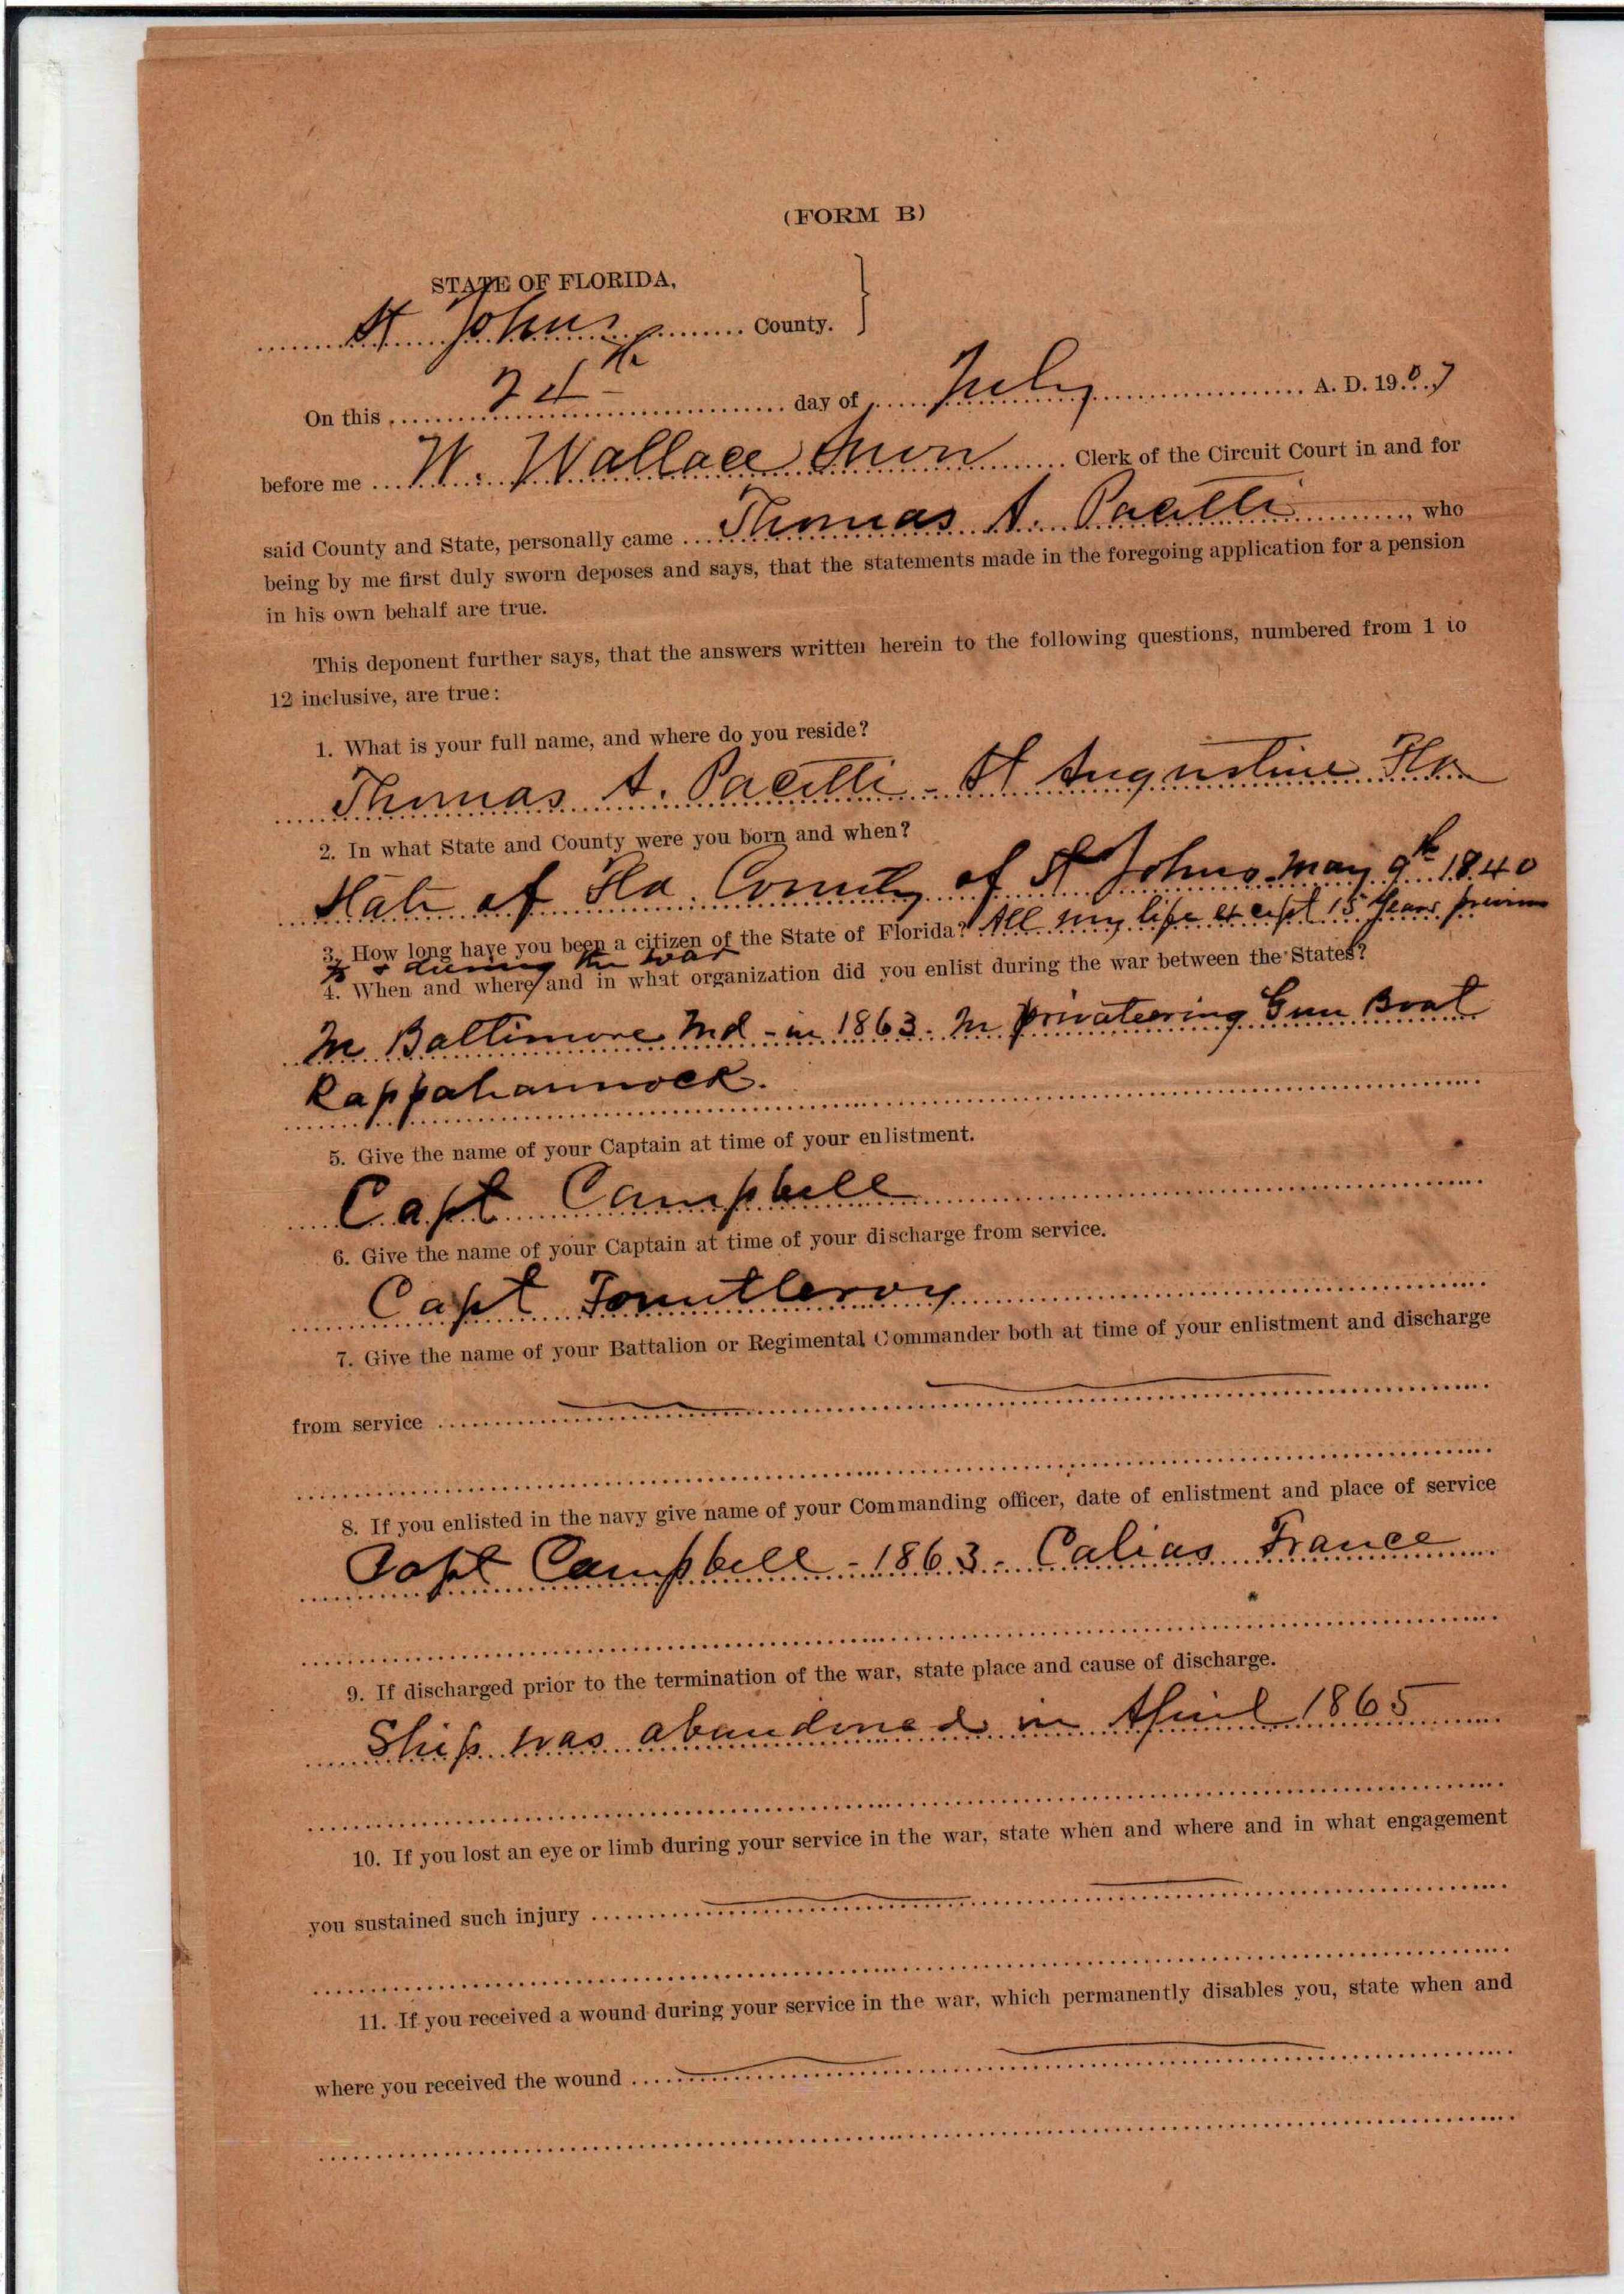 (FORM B)
STATE OF FLORIDA,
St Johns County.
On this 24th day of July A. D. 1907
before me W. Wallace Clerk of the Circuit Court in and for
said County and State, personally came Thomas A. Pacetti, who
being by me first duly sworn deposes and says, that the statements made in the foregoing application for a pension
in his own behalf are true.
This deponent further says, that the answers written herein to the following questions, numbered from 1 to
12 inclusive, are true:
1. What is your full name, and where do you reside?
Thomas A. Pacetti - St Augustine Fla
2. In what State and County were you born and when?
State of Fla. County of St Johns May 9th 1840
3. How long have you been a citizen of the State of Florida? All my life except 15 years previous
to & during the war
4. When and where and in what organization did you enlist during the war between the States?
In Baltimore Md - in 1863. In privateering Gun Boat
Rappahannock.
5. Give the name of your Captain at time of your enlistment.
Capt Campbell
6. Give the name of your Captain at time of your discharge from service.
Capt Fountleroy
7. Give the name of your Battalion or Regimental Commander both at time of your enlistment and discharge
from service
8. If you enlisted in the navy give name of your Commanding officer, date of enlistment and place of service
Capt Campbell - 1863 - Calias France
9. If discharged prior to the termination of the war, state place and cause of discharge.
Ship was abandoned in April 1865
10. If you lost an eye or limb during your service in the war, state when and where and in what engagement
you sustained such injury
11. If you received a wound during your service in the war, which permanently disables you, state when and
where you received the wound